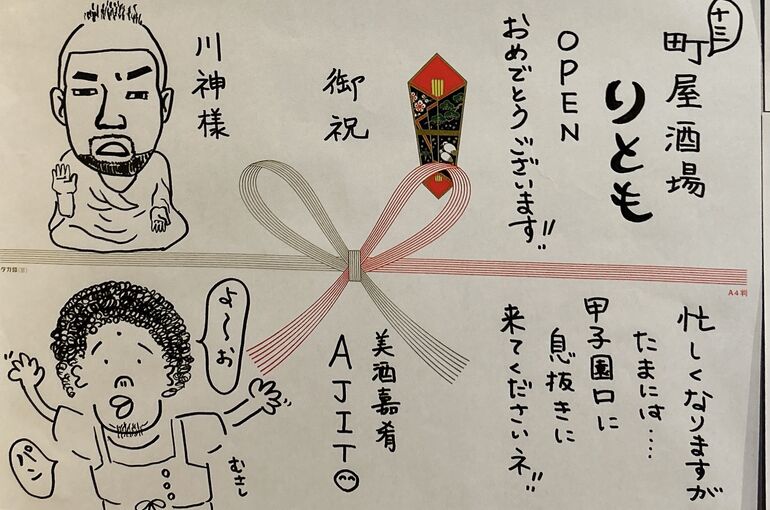 十三
町屋酒場
りとも
OPEN
おめでとうございます!!
御祝
川神様
タカ印(草)
A4判
忙しくなりますが
たまには....
甲子園口に
息抜きに
来てくださいネ!!
美酒嘉肴
AJITO
よ〜ぉ
パン
むさし